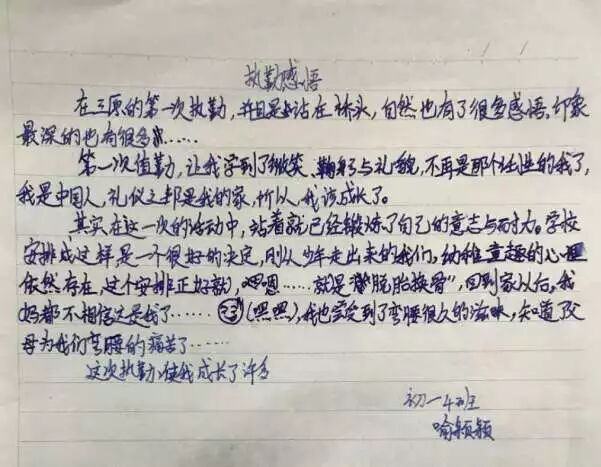 执勤感悟
在三原的第一次执勤，并且是站在桥头，自然也有了很多感悟，印象
最深的也有很多……
第一次值勤，让我学到了微笑、鞠躬与礼貌，不再是那个任性的我了，
我是中国人，礼仪之邦是我的家，所以，我该成长了。
其实在这一次的活动中，站着就已经锻炼了自己的意志与耐力。学校
安排成这样，是一个很好的决定，刚从少年走出来的我们，幼稚童趣的心理
依然存在，这个安排正好就，嗯嗯……就是“脱胎换骨”，回到家以后，我
妈都不相信这是我了……(嘿嘿)，我也感受到了弯腰很久的滋味，知道了父
母为我们弯腰的痛苦了……
这次执勤使我成长了许多
初一4班
喻颖颖